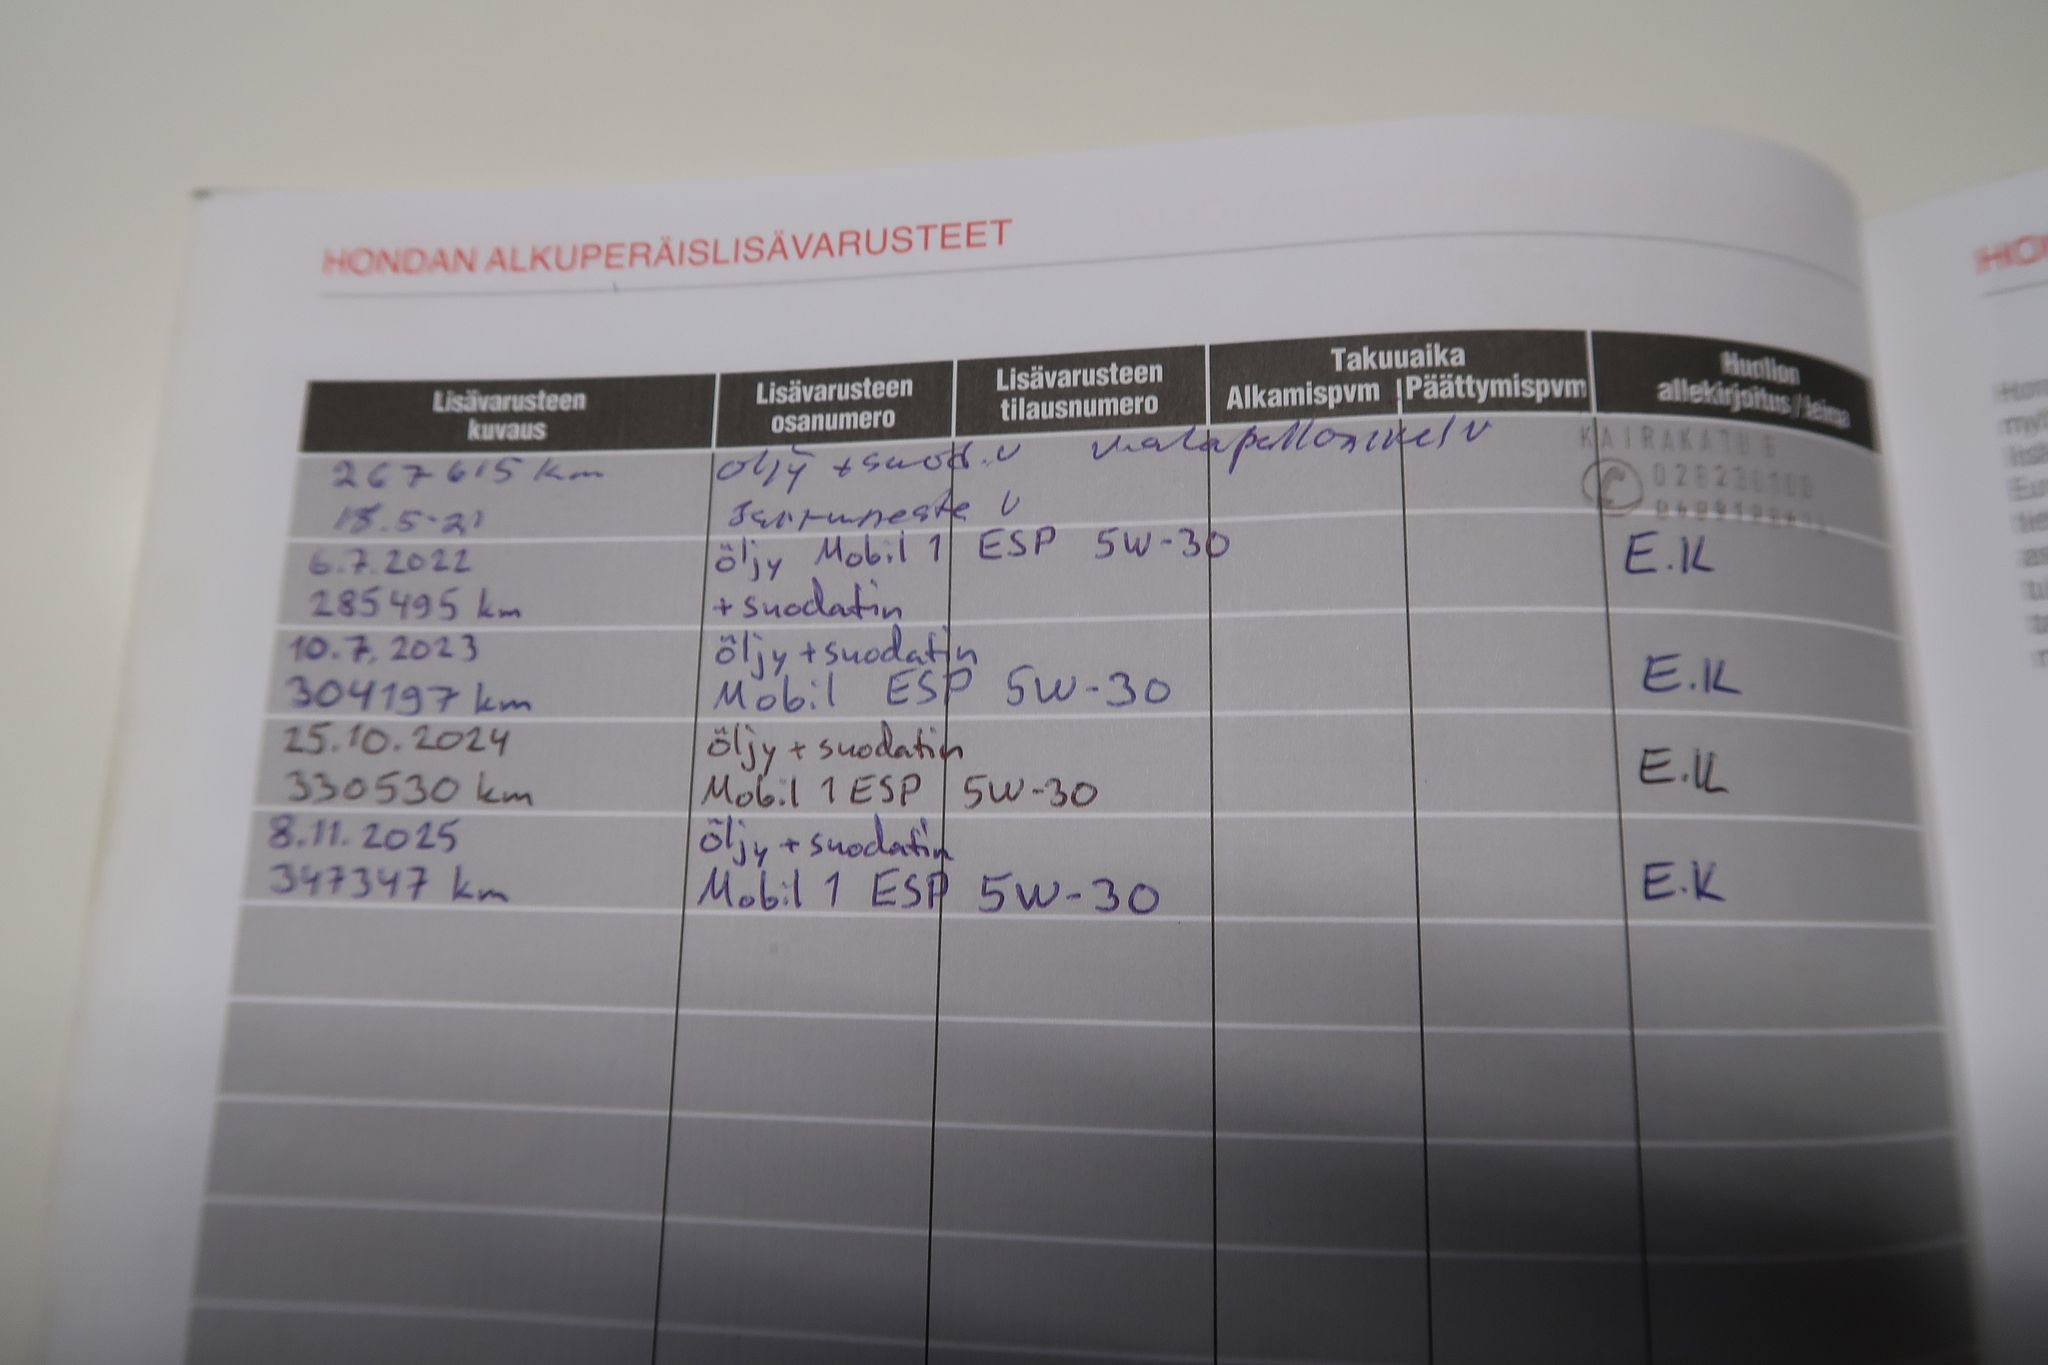 HONDAN ALKUPERÄISLISÄVARUSTEET
Lisävarusteen kuvaus
Lisävarusteen osanumero
Lisävarusteen tilausnumero
Takuuaika
Alkamispvm Päättymispvm
Huollon allekirjoitus / leima
267615 km öljy + suod. v
18.5-21 Jarruneste v
KAIRAKATU
6.7.2022 öljy Mobil 1 ESP 5W-30 E.K
285495 km + suodatin
10.7.2023 öljy + suodatin E.K
304197 km Mobil ESP 5W-30
25.10.2024 öljy + suodatin E.K
330530 km Mobil 1 ESP 5W-30
8.11.2025 öljy + suodatin E.K
347347 km Mobil 1 ESP 5W-30